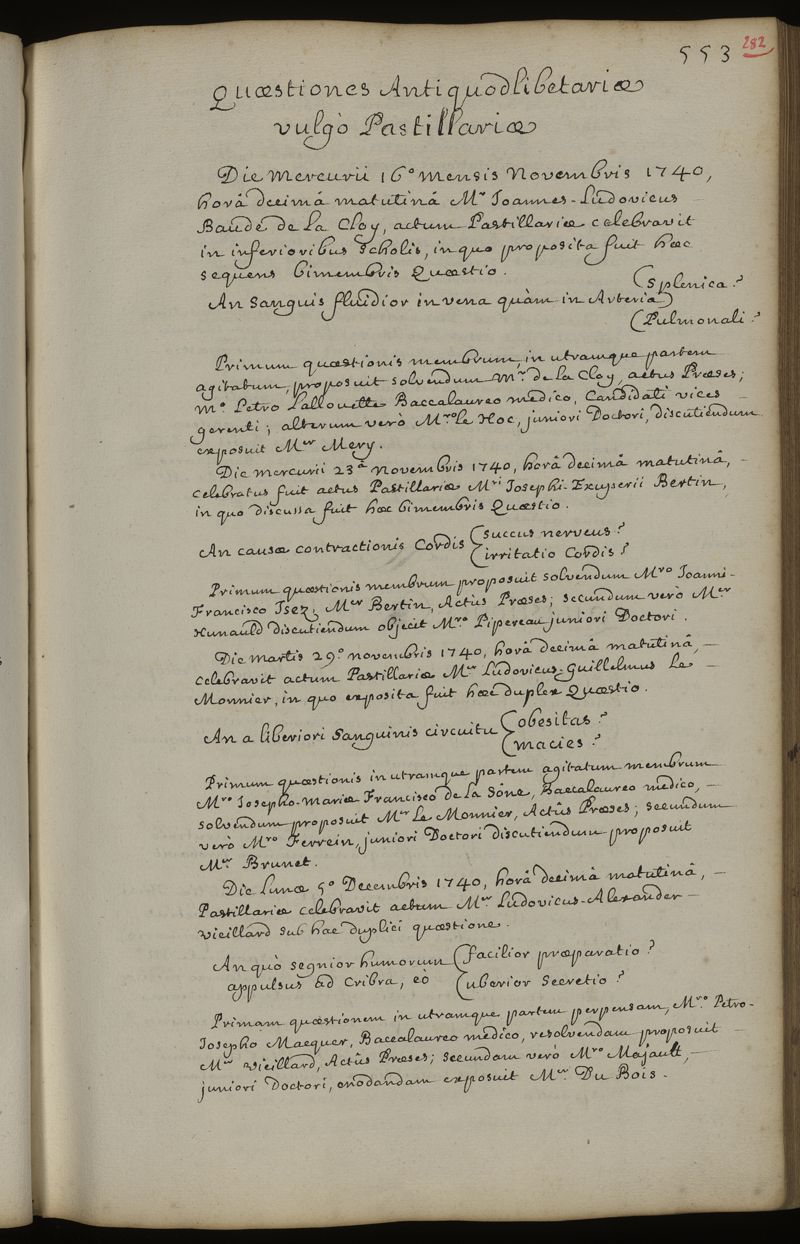 553 282
Quæstiones Antiquodlibetariæ
vulgò Pastillariæ
Die Mercurii 16° mensis Novembris 1740,
horâ decimâ matutinâ Mr Joannes-Ludovicus
Baude de La Cloy, actum Pastillariæ celebravit
in inferioribus scholis, in quo proposita fuit hæc
sequens bimembris Quæstio.
An sanguis fluidior in vena quàm in Arteria (Splenica?
(Pulmonali?
Primum quæstionis membrum in utramque partem
agitatum, proposuit solvendum Mr. de la Cloy, actûs Præses;
Mo Petro Lallouette Baccalaureo medico, Candidati vices
gerenti; alterum verò Mro le Hoc, juniori Doctori, discutiendum
exposuit Mer Mery.
Die mercurii 23a Novembris 1740, horâ decimâ matutinâ, -
celebratus fuit actus Pastillariæ Mri Josephi-Exuperii Bertin,
in quo discussa fuit hæc bimembris Quæstio.
An causa contractionis Cordis (succus nerveus?
(irritatio Cordis?
Primum quæstionis membrum proposuit solvendum Mro Joanni-
Francisco Isez, Mer Bertin, Actûs Præses; secundum verò Mer
Hunauld discutiendum objecit Mro Pipereau juniori Doctori.
Die Martis 29° novembris 1740, horâ decimâ matutinâ, -
celebravit actum Pastillariæ Mer Ludovicus-Guillelmus Le -
Monnier, in quo exposita fuit hæc duplex Quæstio.
An a liberiori Sanguinis circuitu (obesitas?
(macies?
Primum quæstionis in utramque partem agitatum membrum
Mro Josepho-Mariæ Francisco de la Sône, Baccalaureo medico, -
solvendum proposuit Mer Le Monnier, Actûs Præses; secundum
verò Mro Ferrein, juniori Doctori discutiendum proposuit
Mer Brunet.
Die Lunæ 5° Decembris 1740, horâ decimâ matutinâ, -
Pastillariæ celebravit actum Mer Ludovicus-Alexander -
Vieillard sub hac duplici quæstione.
An quò segnior humorum (facilior præparatio?
appulsus ad Cribra, eò (uberior Secretio?
Primam quæstionem in utramque partem perpensam, Mro Petro-
Josepho Macquer, Baccalaureo medico, resolvendam proposuit -
Mer Vieillard, Actûs Præses; secundam verò Mro Majault, -
juniori Doctori, enodandam exposuit Mer Du Bois.